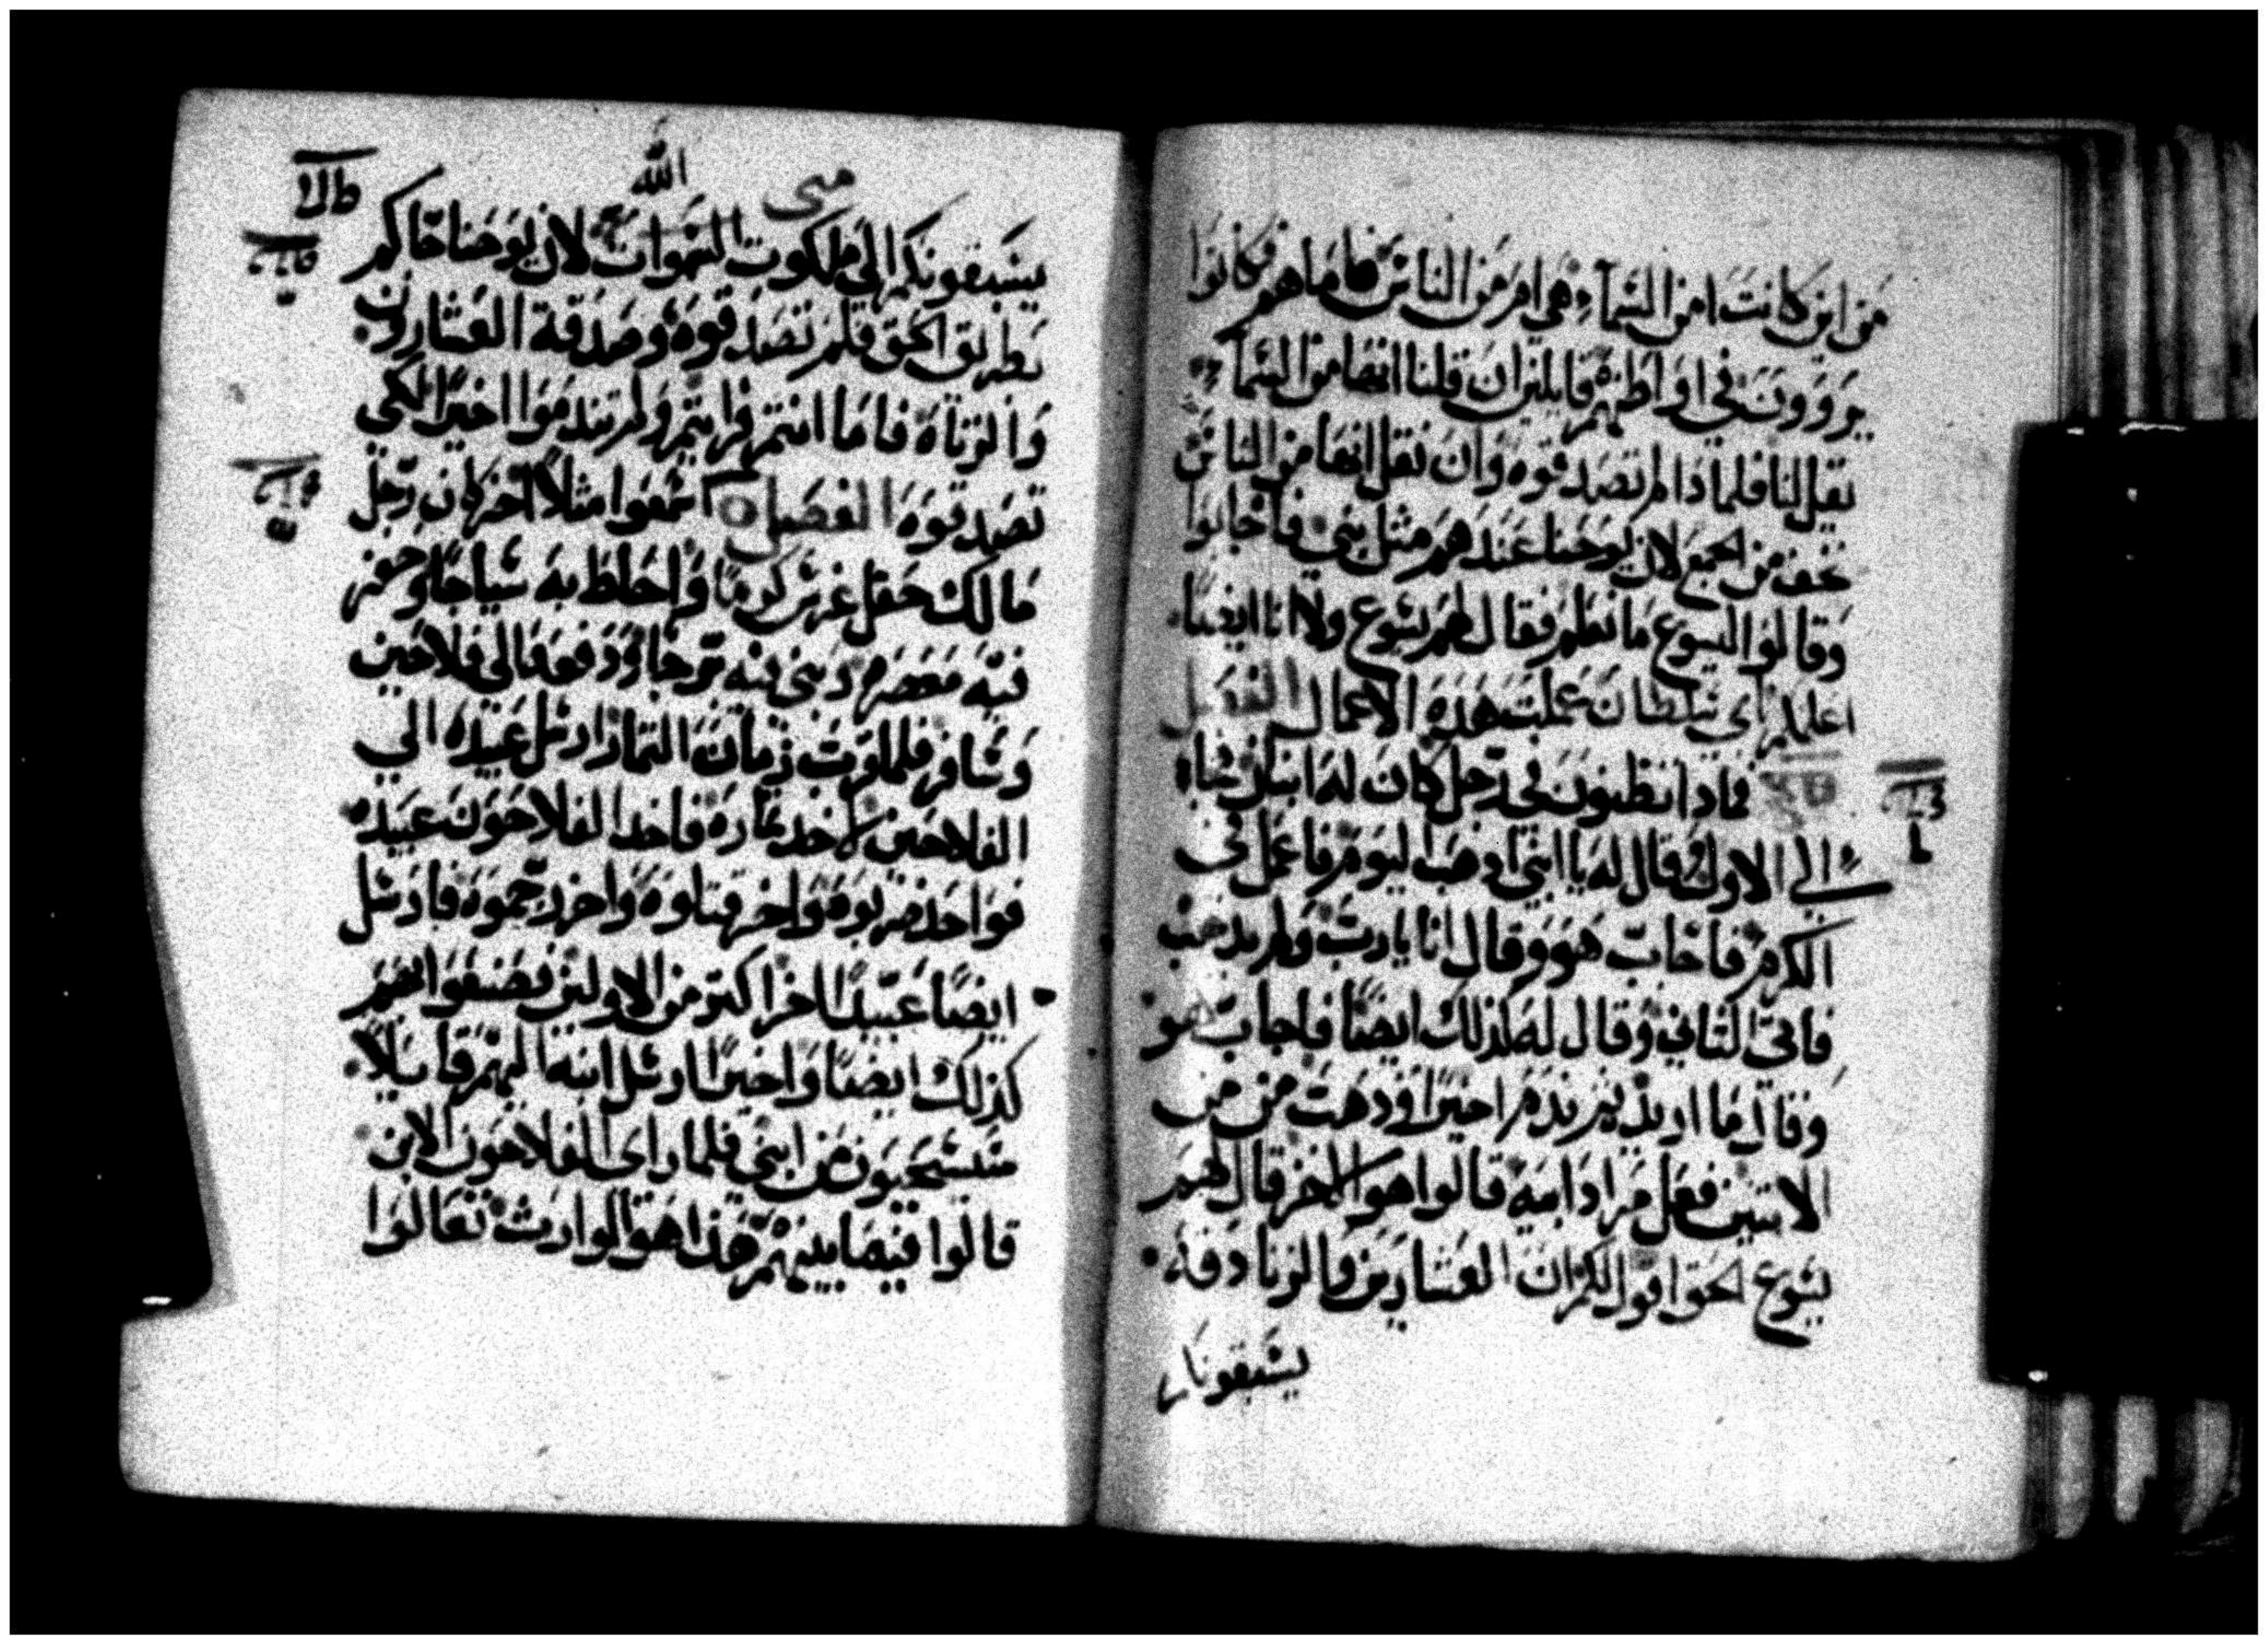 من اين كانت امن السماء هي ام من الناس فاما هم فكانوا
يروون في اواطنهم قايلين ان قلنا انها من السماء
يقل لنا فلماذا لم تصدقوه وان نقل انها من الناس
نخف من الجمع لان يوحنا عندهم مثل نبي فاجابوا
وقالوا ليسوع ما نعلم فقال لهم يسوع ولا انا ايضا
اعلمكم باي سلطان عملت هذه الاعمال الفصل
فماذا تظنون في رجل كان له ابنان فجاء
الي الاول وقال له يا ابني اذهب اليوم فاعمل في
الكرم فاجاب هو وقال انا يارب ولم يذهب
فاتى الثاني وقال له كذلك ايضا فاجاب هو
وقال ما اريد ثم ندم اخيرا وذهب من من
الاثنين فعل مراد ابيه قالوا هو الاخر قال لهم
يسوع الحق اقول لكم ان العشارين والزناة
يسبقونكم
الله
متى
يسبقونكم الى ملكوت السموات لان يوحنا جاكم
بطريق الحق فلم تصدقوه وصدقه العشارون
والزناة فاما انتم فرايتم ولم تندموا اخيرا لكي
تصدقوه الفصل اسمعوا مثلا اخر كان رجل
مالك حقل غرس كرما واحاط به سياجا وحفر
فيه معصره وبنى فيه برجا ودفعه الى فلاحين
وسافر فلما قرب زمان الثمار ارسل عبيده الي
الفلاحين لاخد ثماره فاخد الفلاحون عبيده
فواحد ضربوه واخر قتلوه واخر رجموه فارسل
ايضا عبيدا اخر اكثر من الاولين فصنعوا بهم
كذلك ايضا واخيرا ارسل ابنه اليهم قايلا
سيستحيون من ابني فلما راى الفلاحون الابن
قالوا فيما بينهم هذا هو الوارث تعالوا